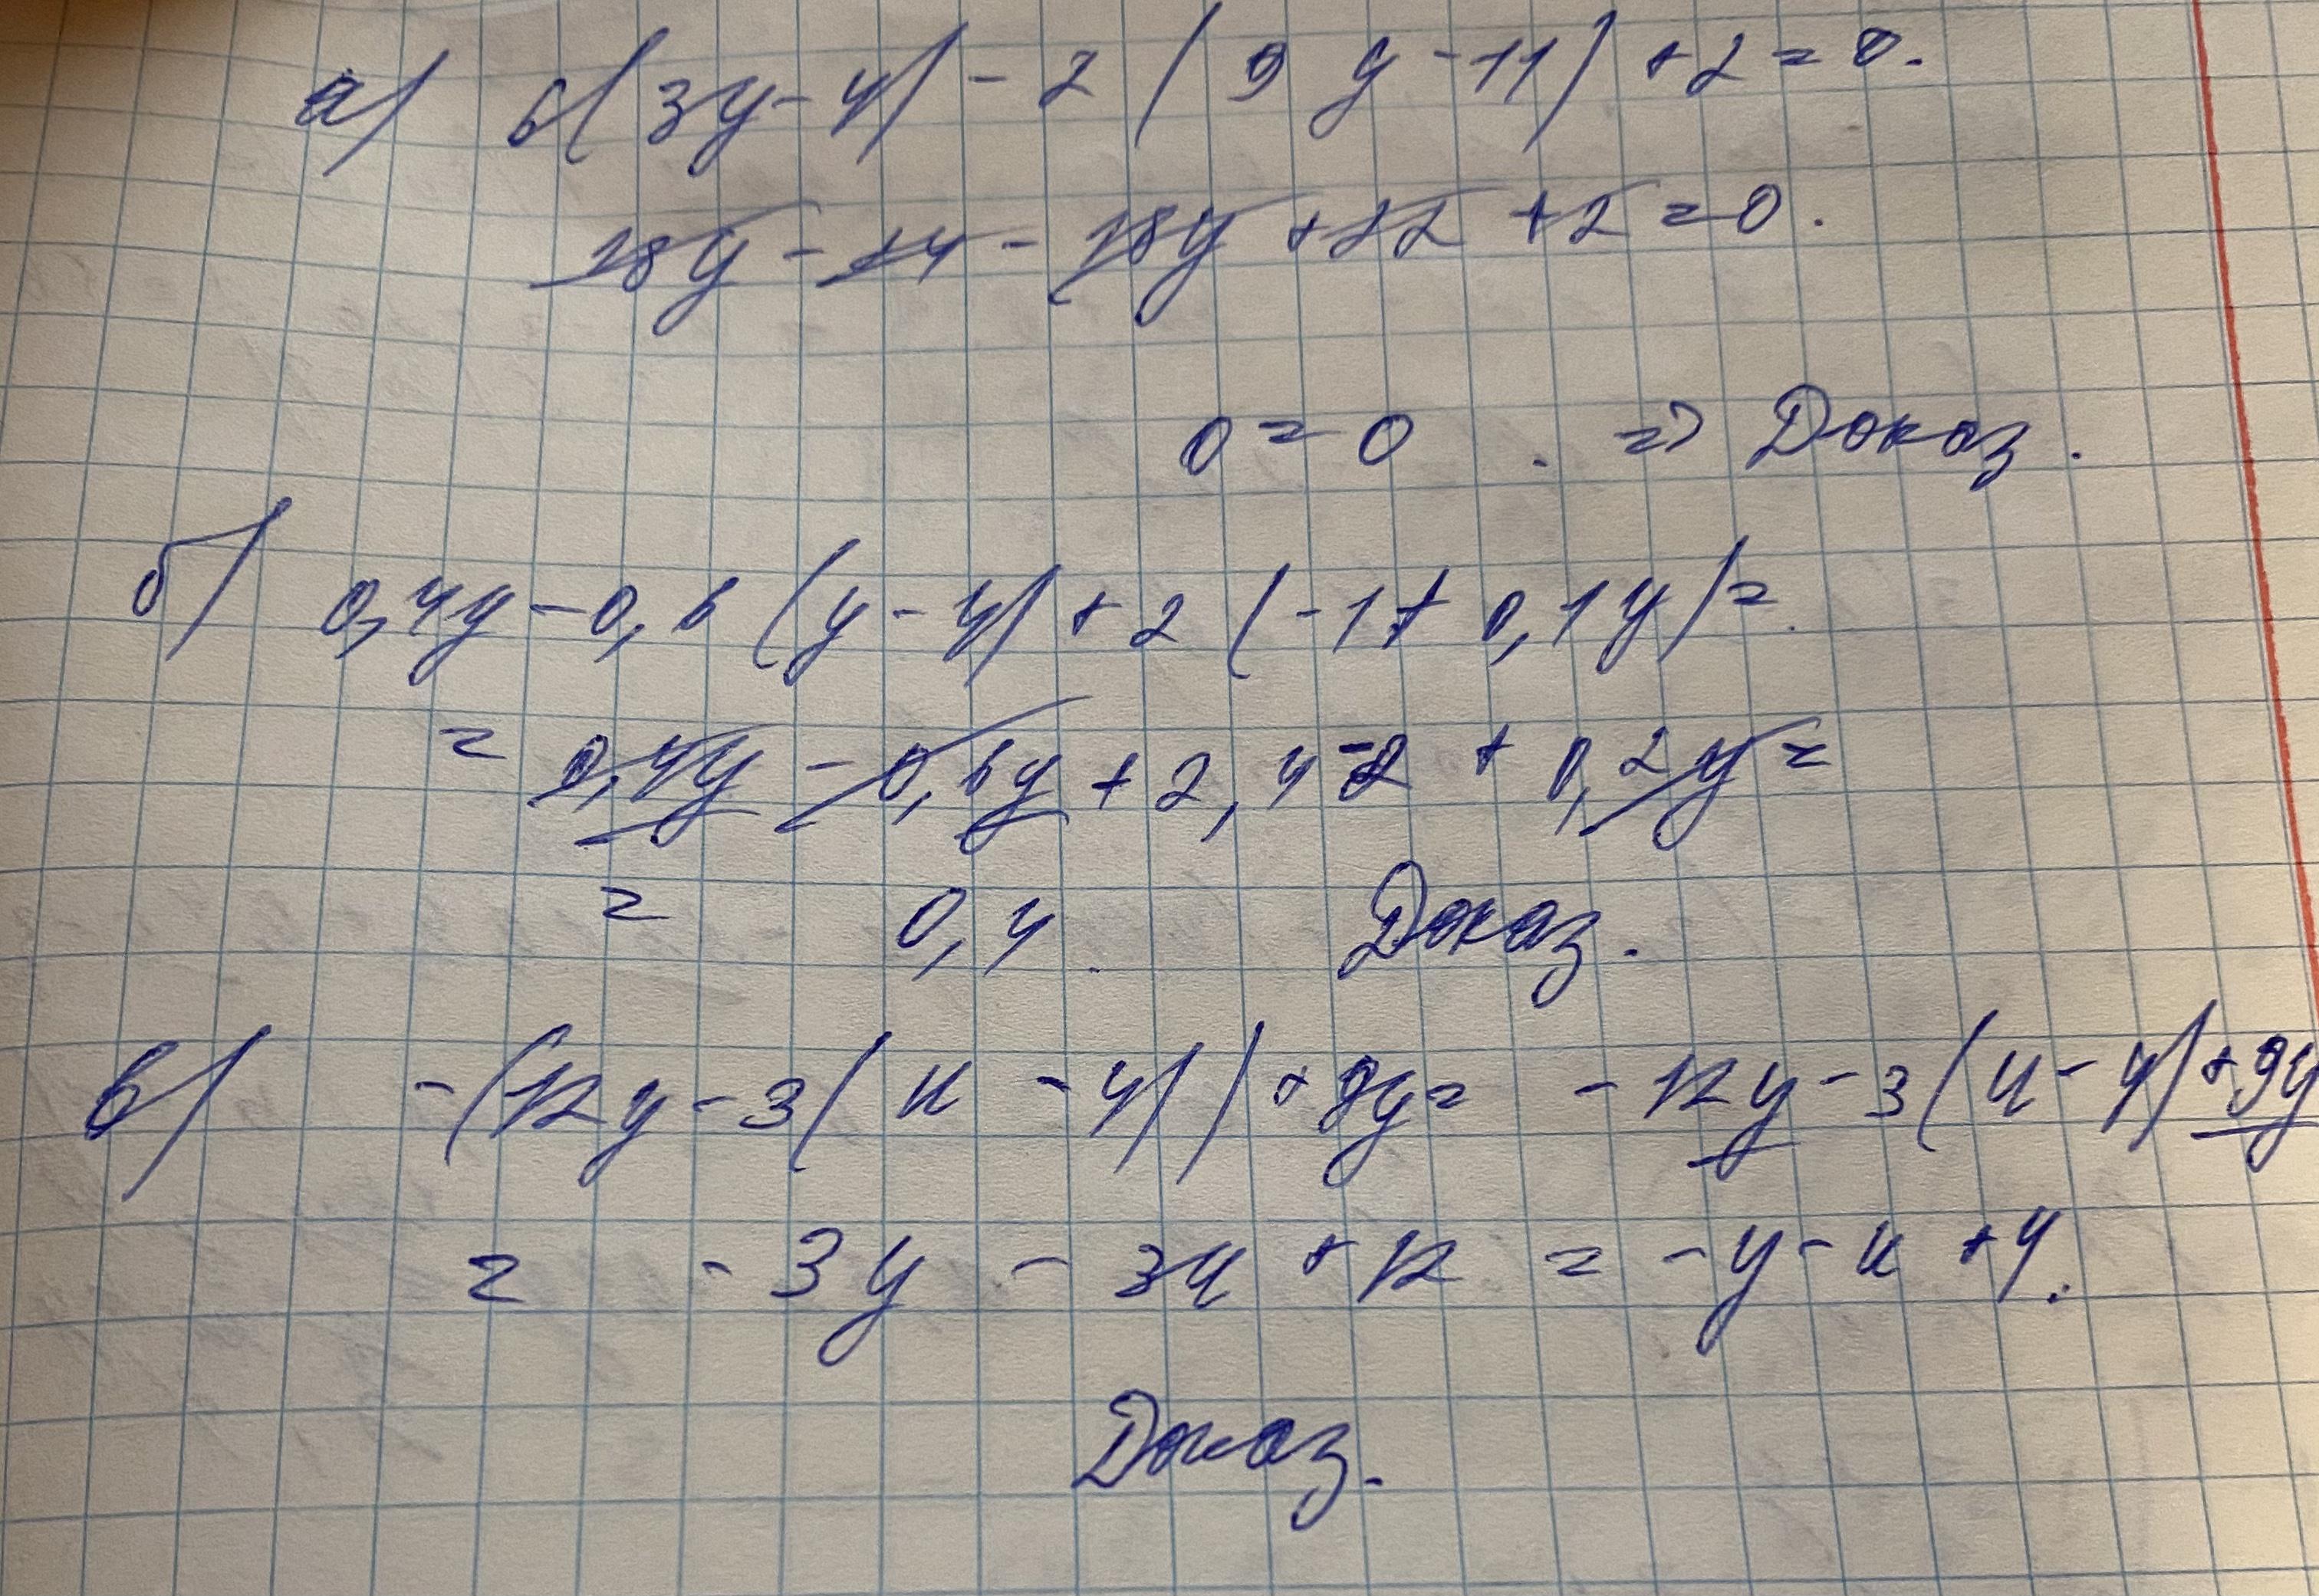 а) 6(3y-4) - 2(9y-11) +2=0.
18y - 24 - 18y +22 +2 =0.
0=0. => Доказ.
б) 0,4y-0,6(y-4)+2(-1+0,1y)=
= 0,4y - 0,6y + 2,4-2 + 0,2y =
= 0,4. Доказ.
в) -(12y-3(u-4))+9y= -12y-3(u-4)+9y
= -3y - 3u +12 = -y-u+4.
Доказ.